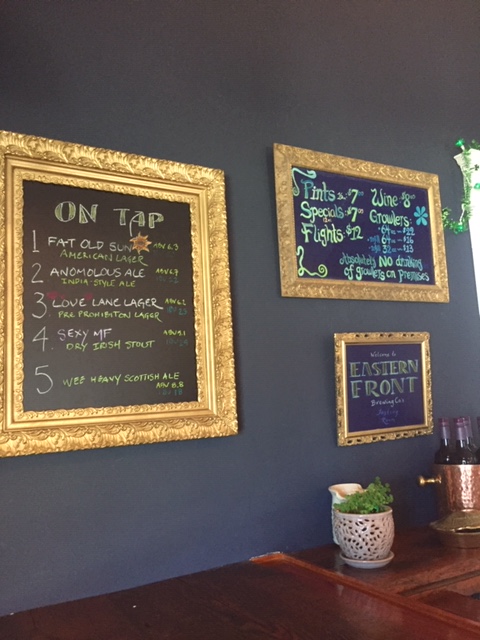 ON TAP
1 FAT OLD SUN ABV 6.3
AMERICAN LAGER
2 ANOMOLOUS ALE
INDIA-STYLE ALE
3 LOVE LANE LAGER
PRE PROHIBITON LAGER
4 SEXY MF
DRY IRISH STOUT
5 WEE HEAVY SCOTTISH ALE
ABV 8.8
Pints $7 Wine $8
Specials $7 Growlers
Flights $12
32oz $13
Absolutely NO drinking
of growlers on premises
Welcome to
EASTERN
FRONT
Brewing Co.